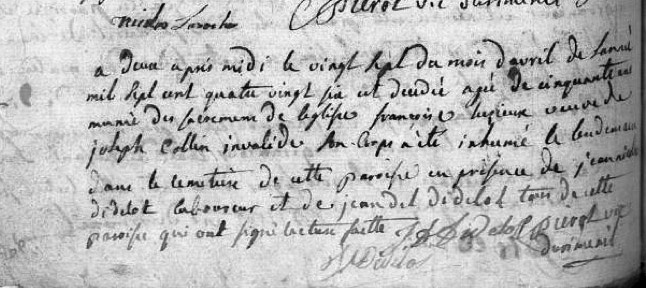 nicolas Laroche Pierot vic durimenil
a deux apres midi le vingt sept du mois davril de Lanné
mil sept cent quatre vingt six est decedée agée de cinquante ans
munie des sacremens de leglise françoise veuve de
joseph Collin invalide son Corps a été inhumé le lendemain
dans le cemetiere de cette paroisse en presence de j'ean nicolas
didelot laboureur et de jean del didelot tous de cette
paroisse qui ont signé lecture faitte Didelot pierot vic
Didelot durimenil